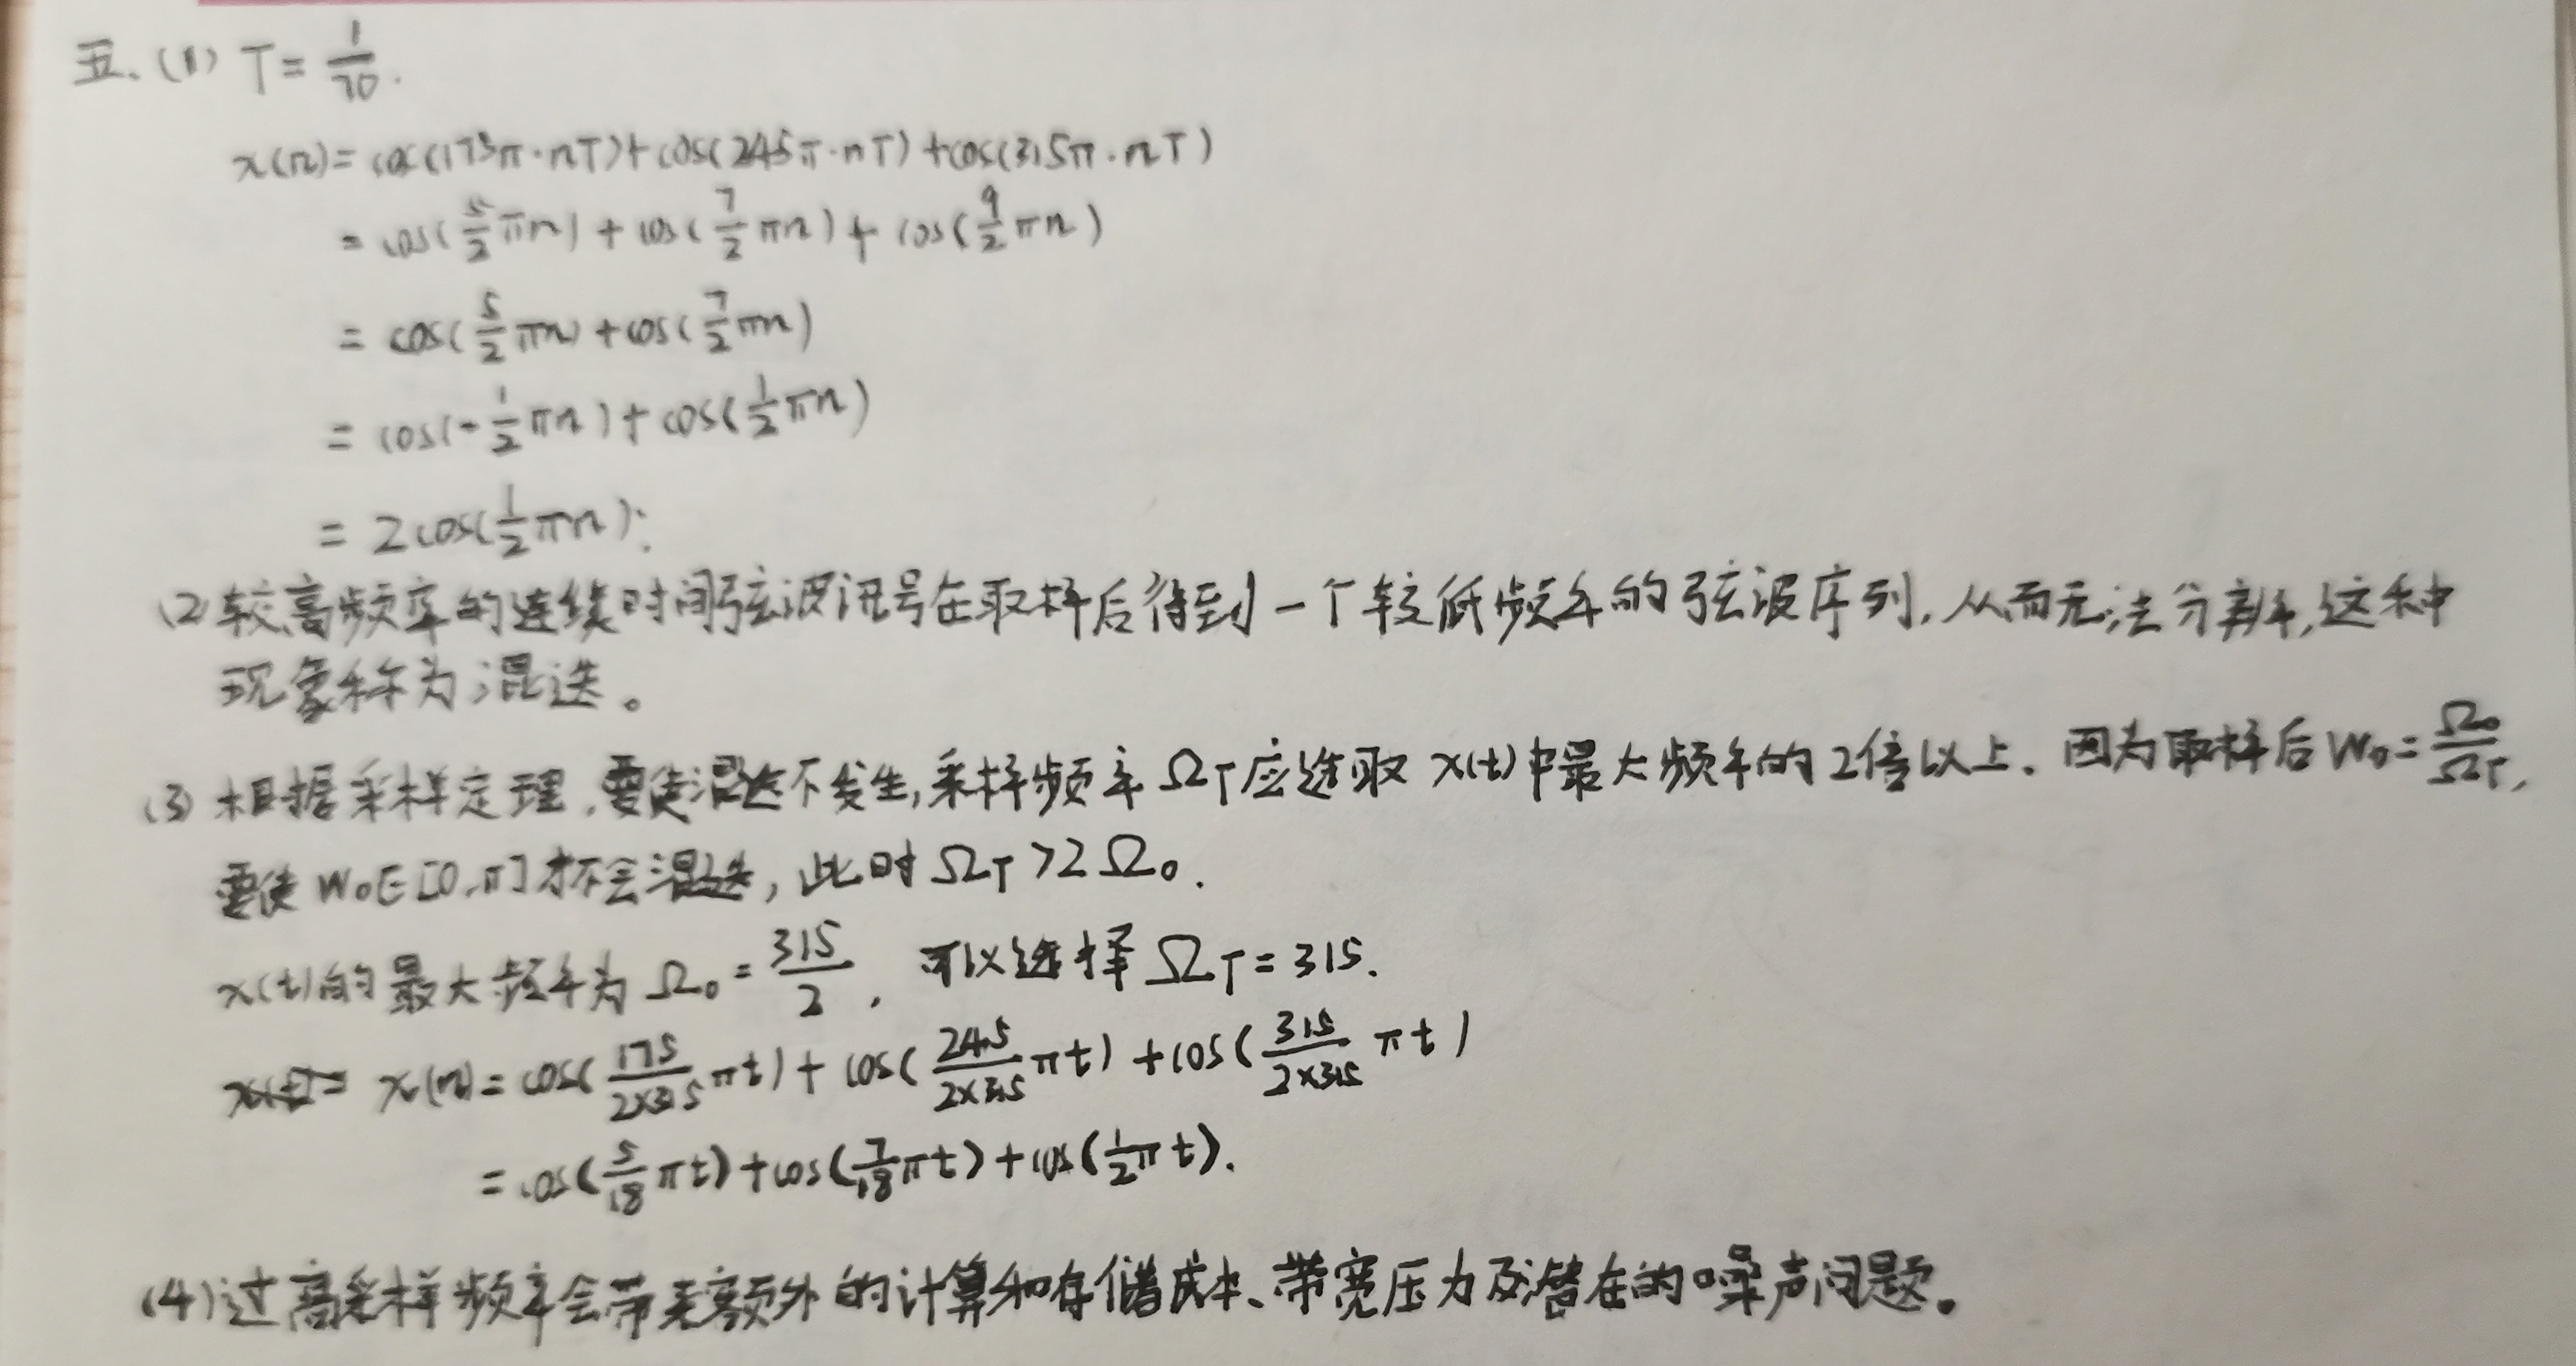 五、(1) T = 1/70.
x(n) = cos(175π·nT) + cos(245π·nT) + cos(315π·nT)
= cos(5/2 πn) + cos(7/2 πn) + cos(9/2 πn)
= cos(5/2 πn) + cos(7/2 πn)
= cos(-1/2 πn) + cos(1/2 πn)
= 2cos(1/2 πn);
(2) 较高频率的连续时间弦波讯号在取样后得到一个较低频率的弦波序列,从而无法分辨,这种
现象称为混迭。
(3) 根据采样定理,要使混迭不发生,采样频率 Ω_T 应选取 x(t) 中最大频率的2倍以上. 因为取样后 W₀ = Ω₀/Ω_T,
要使 W₀∈[0,π] 才不会混迭, 此时 Ω_T > 2Ω₀.
x(t)的最大频率为 Ω₀ = 315/2, 可以选择 Ω_T = 315.
x(n) = cos(175/(2×315) πt) + cos(245/(2×315) πt) + cos(315/(2×315) πt)
= cos(5/18 πt) + cos(7/18 πt) + cos(1/2 πt).
(4) 过高采样频率会带来额外的计算和存储成本、带宽压力及潜在的噪声问题。